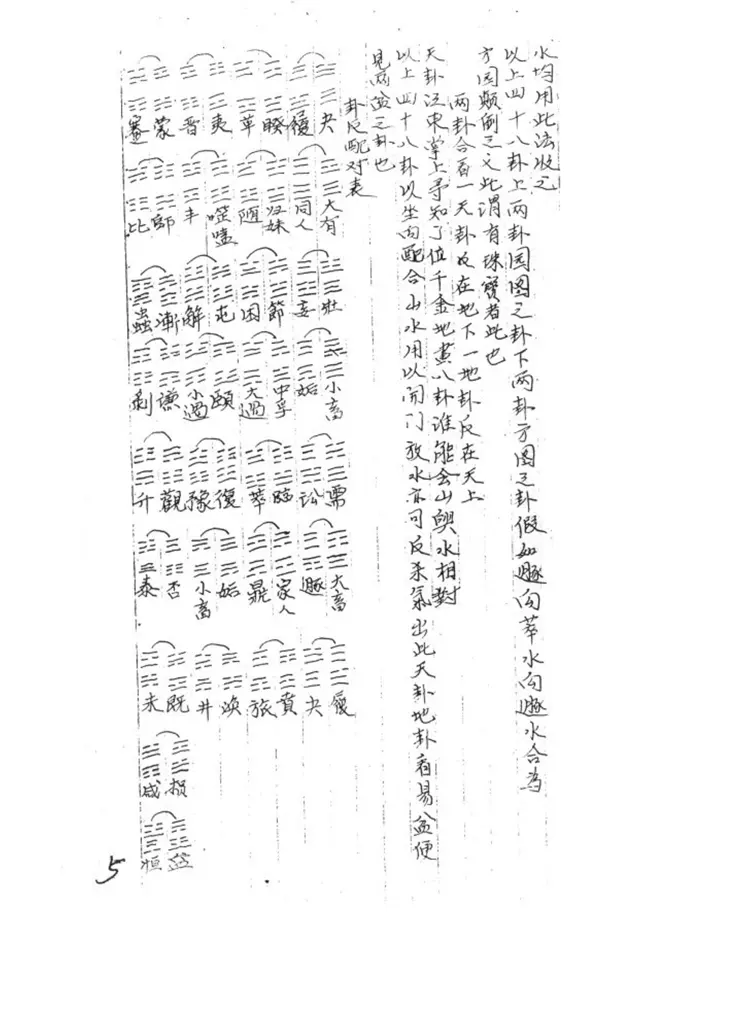 水均用此法收之
以上四十八卦上两卦园图之卦下两卦方图之卦假如遯向萃水向遯水合为
方园颠倒之义此谓有珠宝者此也
两卦合看一天卦反在地下一地卦反在天上
天卦江東掌上寻知了值千金地畫八卦谁能会山與水相對
以上四十八卦以坐向配合山水用以开门放水亦可反杀氣出此天卦地卦看易盆便
見两盆之卦也
卦反配对表
夬 履 睽 革 夷 晋 蒙 蹇
大有 同人 归妹 随 噬嗑 丰 師 比
壯 妄 節 困 屯 解 漸 蠱
小畜 姤 中孚 大過 頤 小過 謙 剥
需 讼 臨 萃 復 豫 觀 升
大畜 遯 家人 鼎 姤 小畜 否 泰
履 夬 賁 旅 渙 井 既 未
损 咸
益 恒
5